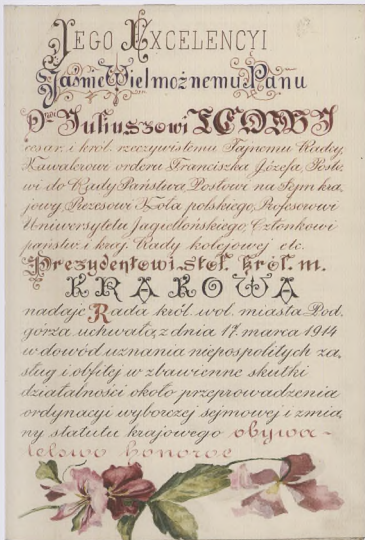 JEGO EXCELENCYI
JaśnieWielmożnemu Panu
Drwi Juliuszowi LEOWI
cesar. i król. rzeczywistemu Tajnemu Radcy,
Kawalerowi orderu Franciszka Józefa, Posło-
wi do Rady Państwa, Posłowi na Sejm kra-
jowy, Prezesowi Koła polskiego, Profesorowi
Uniwersytetu Jagiellońskiego, Członkowi
państw. i kraj. Rady kolejowej etc.
Prezydentowi stoł. król. m.
KRAKOWA
nadaje Rada król. wol. miasta Pod-
górza uchwałą z dnia 17. marca 1914
w dowód uznania niepospolitych za-
sług i obfitej w zbawienne skutki
działalności około przeprowadzenia
ordynacyi wyborczej sejmowej i zmia-
ny statutu krajowego obywa-
telstwo honorowe